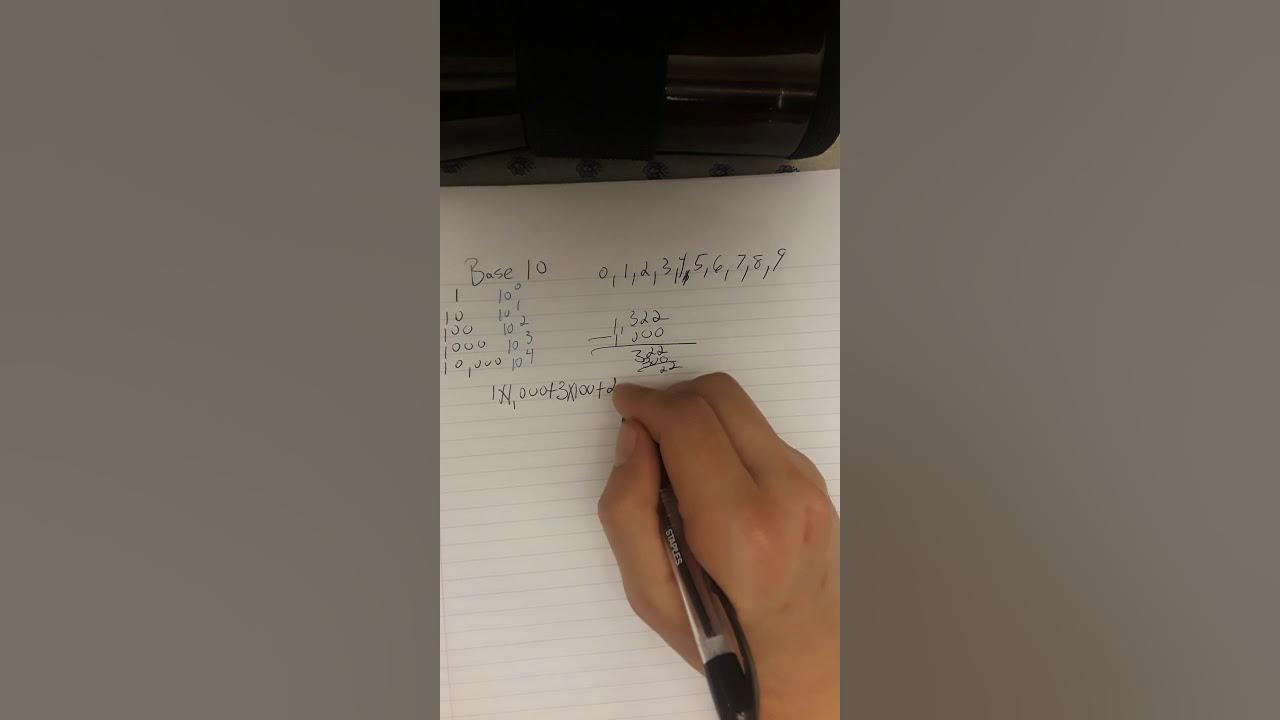 Base 10 0,1,2,3,4,5,6,7,8,9
1 10^0
10 10^1
100 10^2
1000 10^3
10,000 10^4
1,322
- 1,000
322
300
22
1x1,000+3x100+2
STAPLES